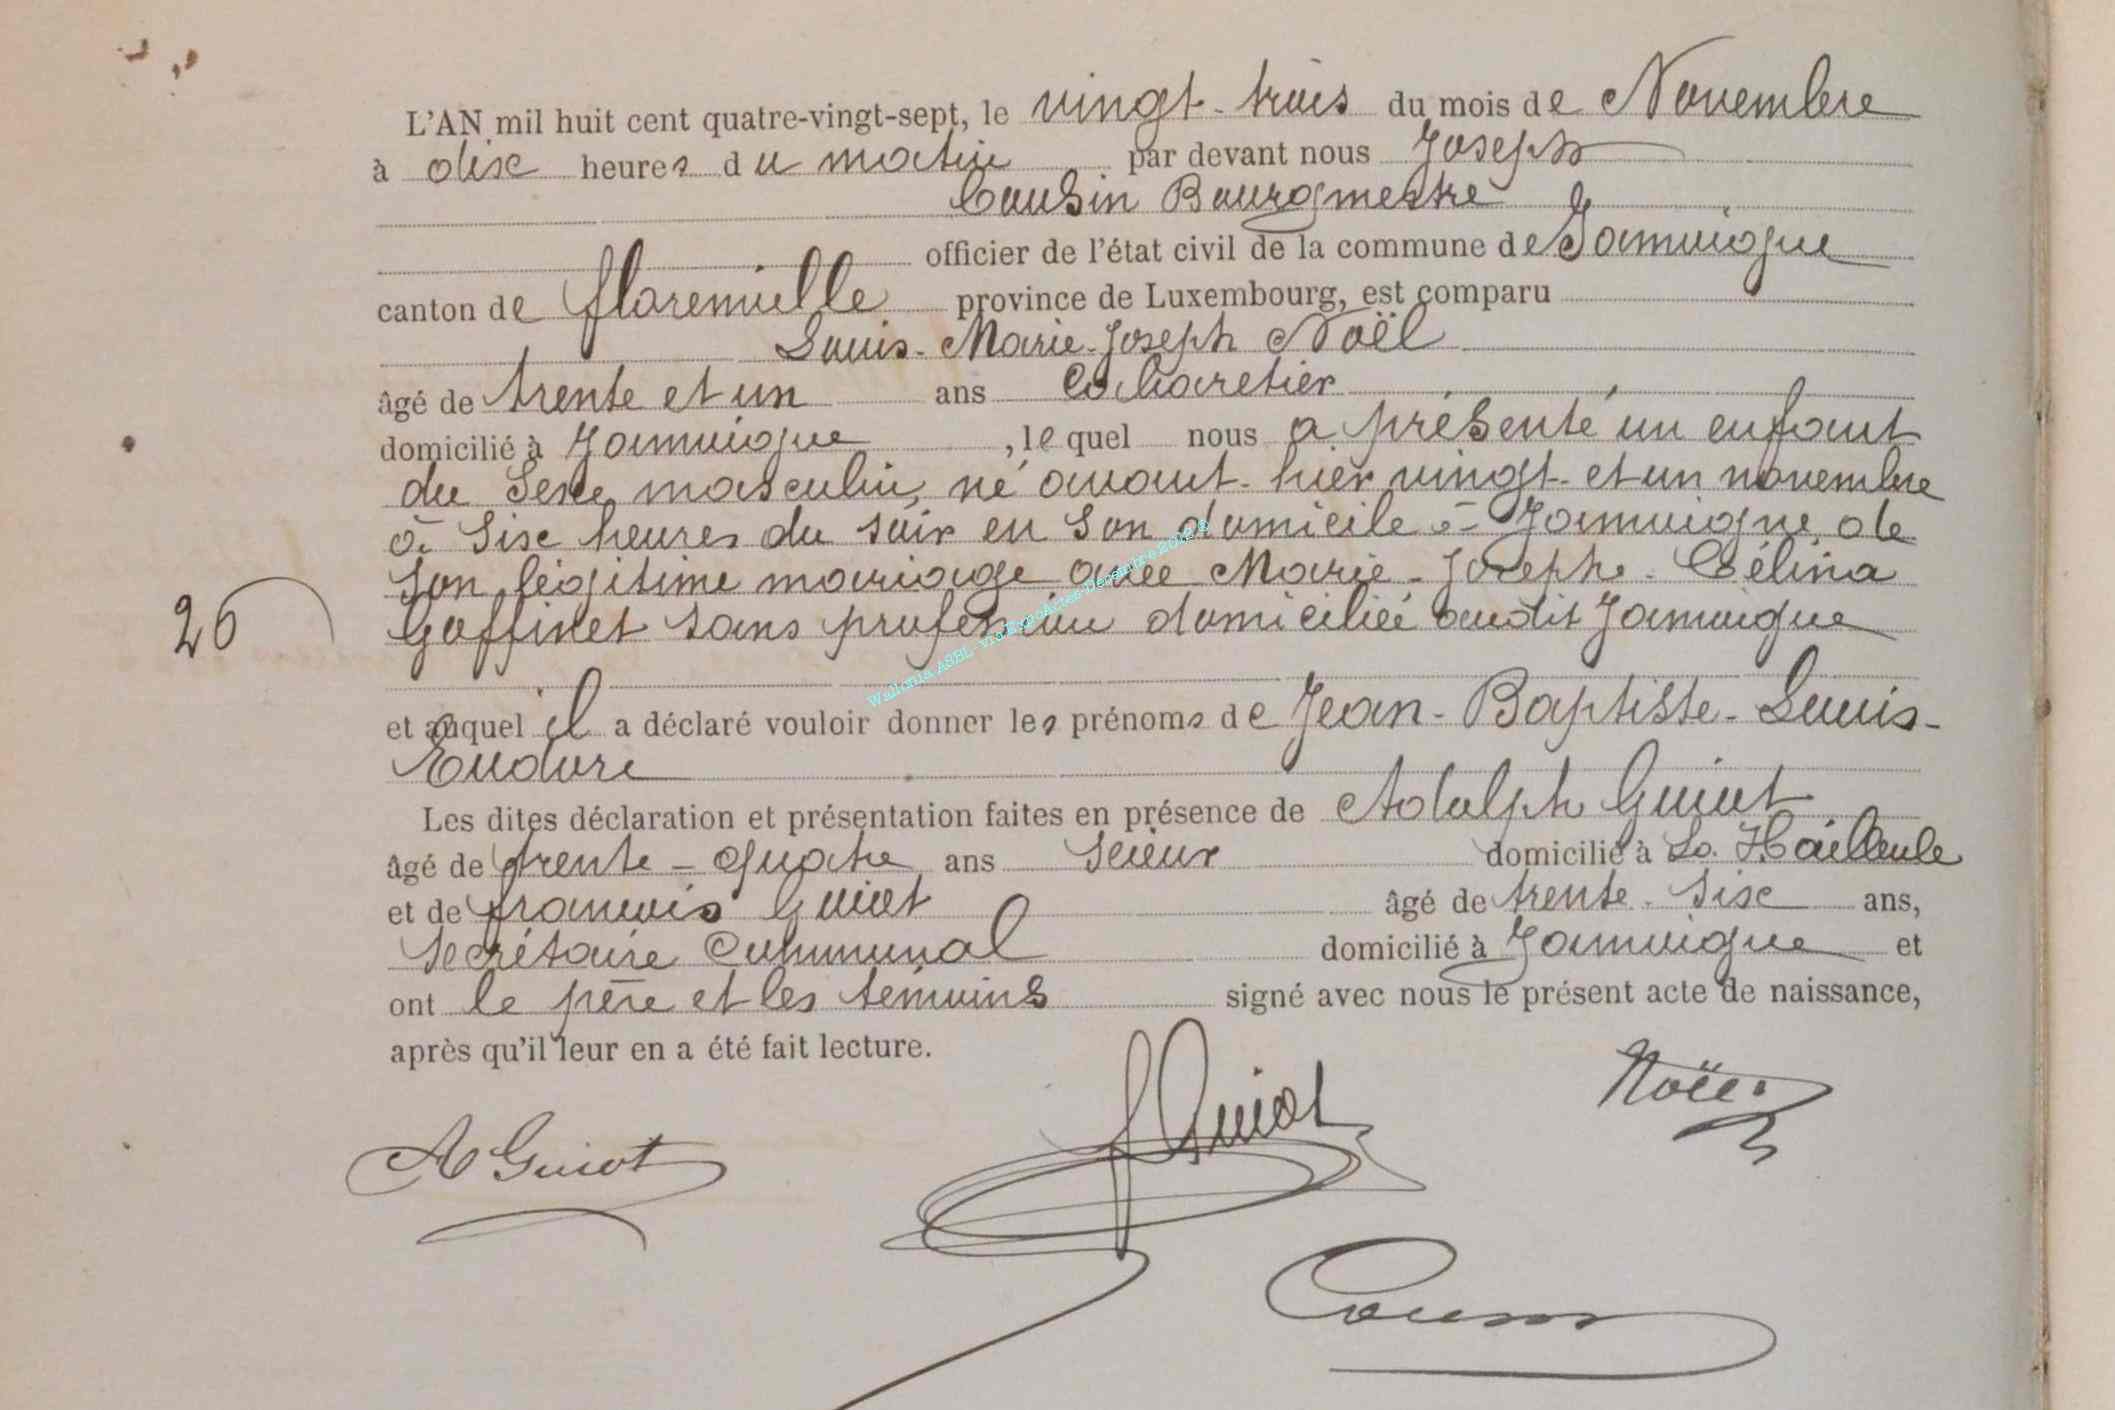 L'AN mil huit cent quatre-vingt-sept, le vingt-trois du mois de Novembre
à dix heures du matin par devant nous Joseph
Cousin Bourgmestre
officier de l'état civil de la commune de Jamoigne
canton de florenville province de Luxembourg, est comparu
Louis-Marie-Joseph Noël
âgé de trente et un ans
domicilié à Jamoigne, lequel nous a présenté un enfant
du Sexe masculin, né avant-hier vingt-et un novembre
à Six heures du soir en son domicile à Jamoigne, de
son légitime mariage avec Marie-Joseph-Célina
Goffinet sans profession domiciliée audit Jamoigne
26
et auquel il a déclaré vouloir donner les prénoms de Jean-Baptiste-Louis-
Eudore
Les dites déclaration et présentation faites en présence de Adolph Guiot
âgé de trente-quatre ans scieur domicilié à La Hailleule
et de françois Guiot âgé de trente-six ans,
Secrétaire Communal domicilié à Jamoigne et
ont le père et les témoins signé avec nous le présent acte de naissance,
après qu'il leur en a été fait lecture.
Noël
A Guiot
f Guiot
Cousin
Wallonia ASBL - via ExpoActes-Décembre